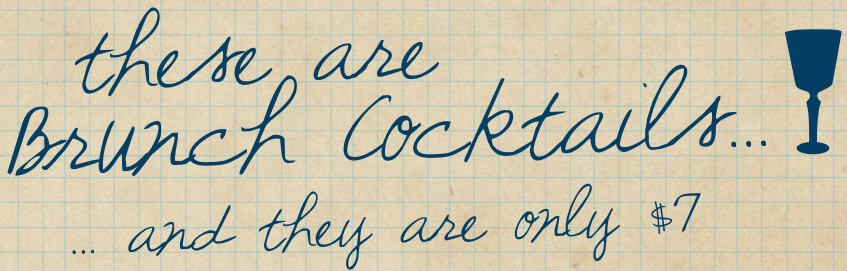 these are
Brunch Cocktails...
... and they are only $7